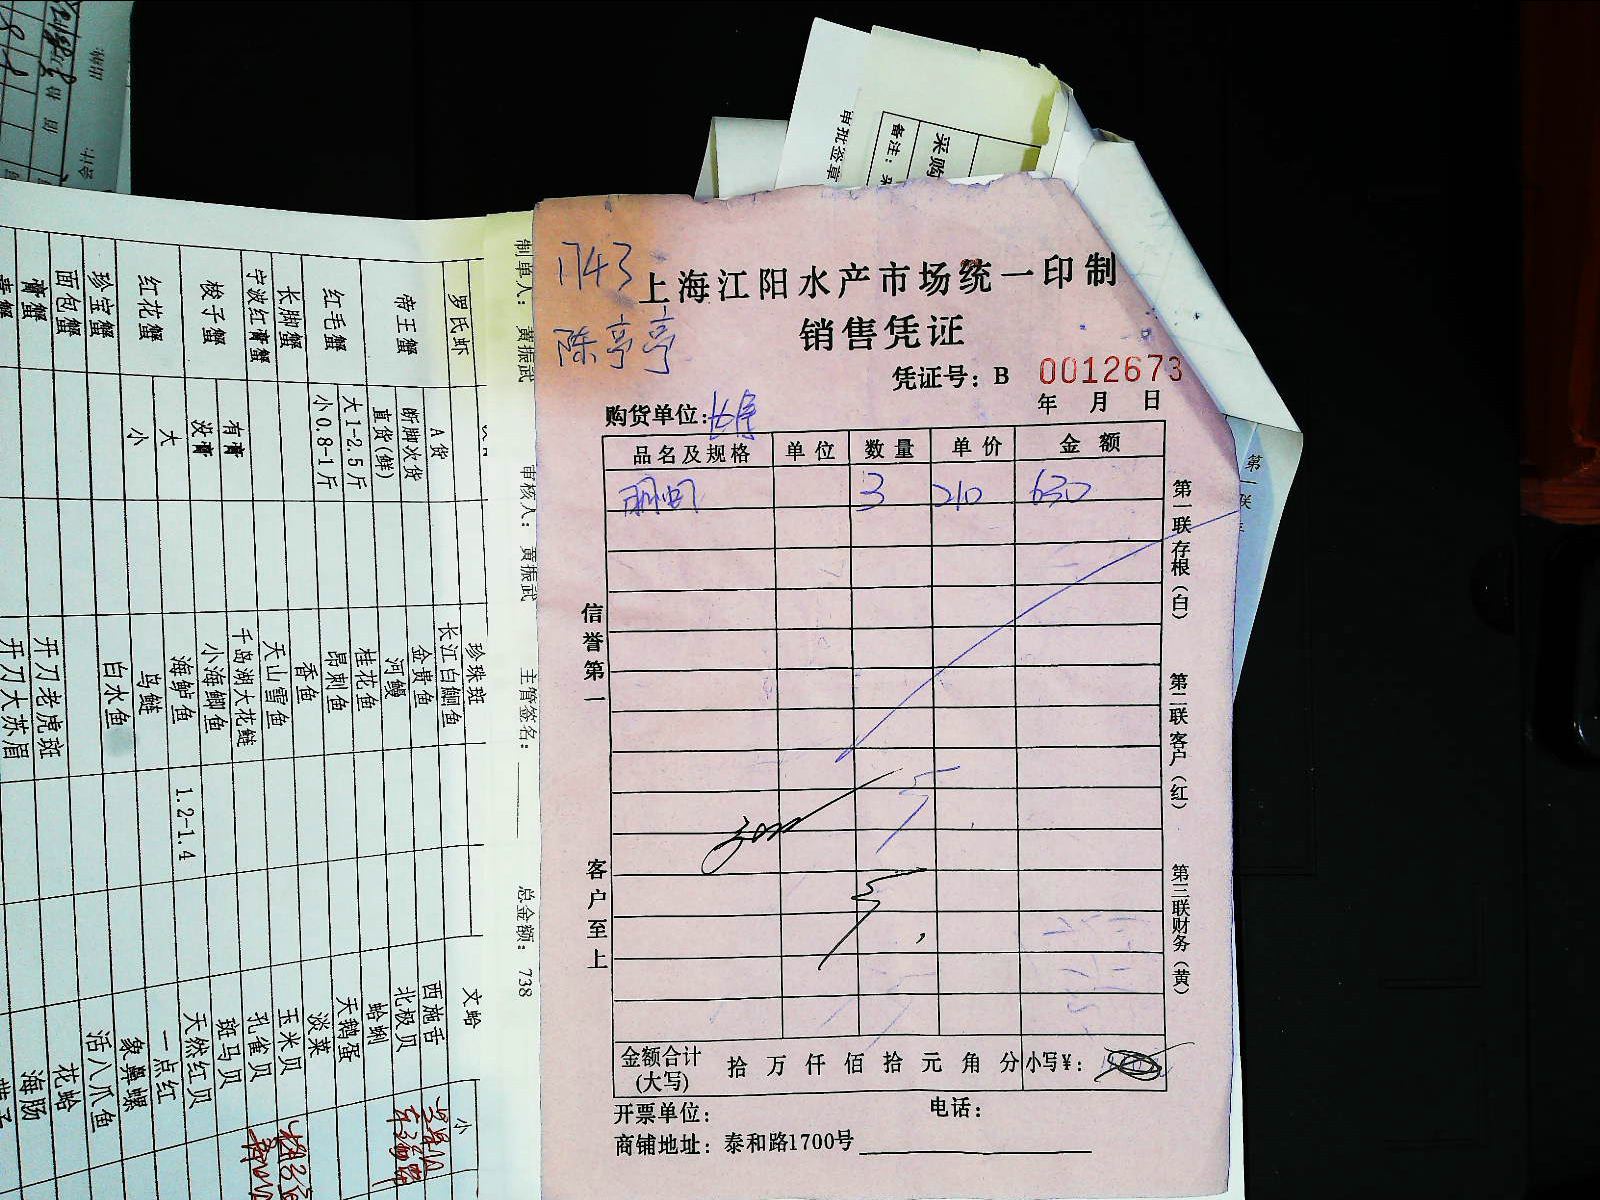 1743
陈亭亭
上海江阳水产市场统一印制
销售凭证
凭证号：B 0012673
年 月 日
购货单位：
品名及规格 单位 数量 单价 金额
3 210 630
信誉第一
客户至上
第一联存根（白）
第二联客户（红）
第三联财务（黄）
金额合计（大写） 拾 万 仟 佰 拾 元 角 分 小写¥：
开票单位： 电话：
商铺地址：泰和路1700号
审批签章
备注：
采购
第一联
制单人： 黄振武 审核人： 黄振武 主管签名： 总金额：738
罗氏虾
帝王蟹 A货
断脚次货
直货(鲜)
红毛蟹 大1-2.5斤
小0.8-1斤
长脚蟹
宁波红膏蟹
梭子蟹 有膏
没膏
红花蟹 大
小
珍宝蟹
面包蟹
膏蟹
珍珠斑
长江白鮰鱼
金贵鱼
河鳗
桂花鱼
昂刺鱼
香鱼
天山雪鱼
千岛湖大花鲢
小海鲫鱼
海鲈鱼 1.2-1.4
鸟鲢
白水鱼
开刀老虎斑
开刀大苏眉
文蛤 小
西施舌
北极贝
蛤蜊
天鹅蛋
淡菜
玉米贝
孔雀贝
斑马贝
天然红贝
一点红
象鼻螺
活八爪鱼
花蛤
海肠